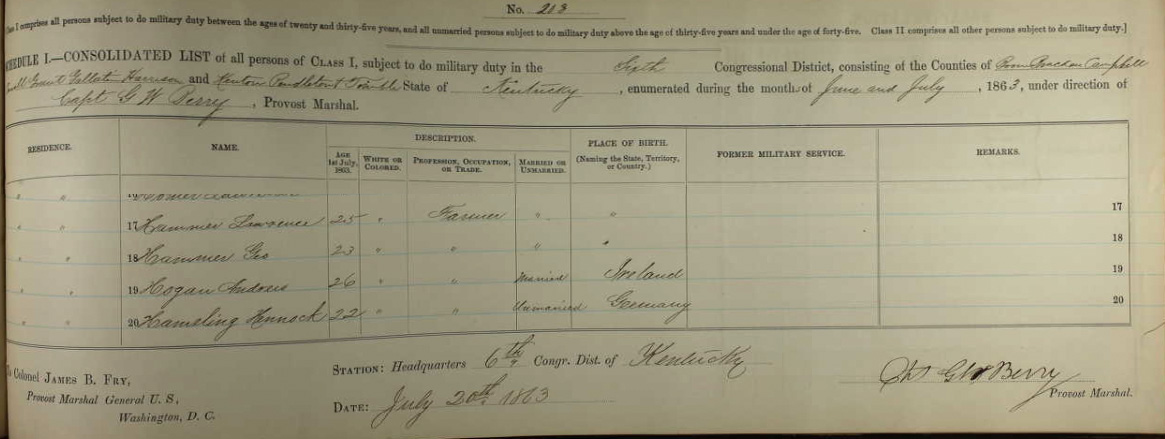 No. 203
Class I comprises all persons subject to do military duty between the ages of twenty and thirty-five years, and all unmarried persons subject to do military duty above the age of thirty-five years and under the age of forty-five. Class II comprises all other persons subject to do military duty.]
SCHEDULE I.—CONSOLIDATED LIST of all persons of CLASS I, subject to do military duty in the Sixth Congressional District, consisting of the Counties of Campbell
Grant Gallatin Harrison and Kenton Pendleton Trimble State of Kentucky, enumerated during the month of June and July, 1863, under direction of
Capt G W Berry, Provost Marshal.
RESIDENCE. NAME. DESCRIPTION. PLACE OF BIRTH. (Naming the State, Territory, or Country.) FORMER MILITARY SERVICE. REMARKS.
AGE 1st July, 1863. WHITE OR COLORED. PROFESSION, OCCUPATION, OR TRADE. MARRIED OR UNMARRIED.
" "
" " 17 Hammer Lawrence 25 " Farmer " " 17
" " 18 Hammer Geo 23 " " " " 18
" " 19 Hogan Andrew 26 " " Married Ireland 19
" " 20 Hameling Hennock 22 " " Unmarried Germany 20
STATION: Headquarters 6th Congr. Dist. of Kentucky
To Colonel JAMES B. FRY,
Provost Marshal General U. S,
Washington, D. C.
DATE: July 20th 1863
Geo W Berry
Provost Marshal.